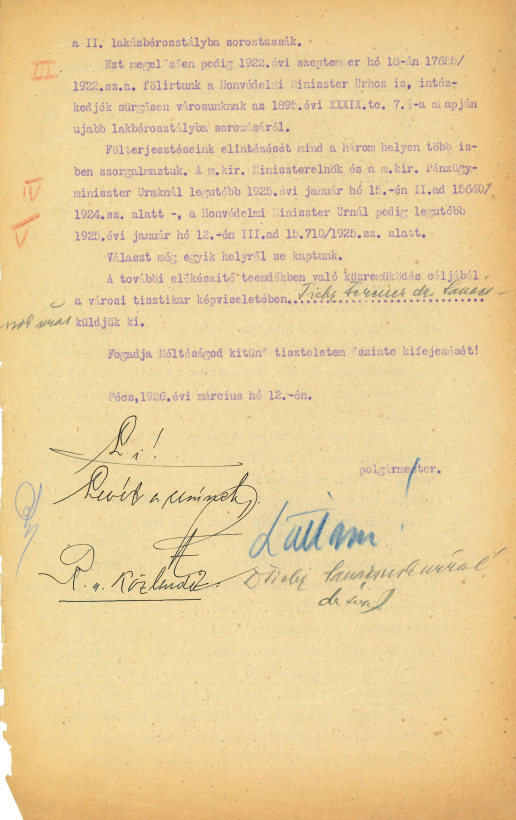 a II. lakásbérosztályba soroztassák.
Ezt megelőzően pedig 1922.évi szeptember hó 18-án 17686/
1922.sz.a. fölirtunk a Honvédelmi Miniszter Urhoz is, intéz-
kedjék sürgősen városunknak az 1895.évi XXXIX.tc. 7.§-a alapján
ujabb lakbérosztályba sorozásáról.
III
Fölterjesztéseink elintézését mind a három helyen több iz-
ben szorgalmaztuk. A m.kir. Miniszterelnök és a m.kir. Pénzügy-
miniszter Uraknál legutóbb 1925.évi január hó 15.-én II.ad 15640/
1924.sz. alatt -, a Honvédelmi Miniszter Urnál pedig legutóbb
1925.évi január hó 12.-én III.ad 15.710/1925.sz. alatt.
IV
V
Választ még egyik helyről se kaptunk.
A további előkészitő teendőkben való közreműködés céljából
a városi tisztikar képviseletében Tichy Ferenc dr. tanács-
nok urat küldjük ki.
Fogadja Méltóságod kitünő tiszteletem őszinte kifejezését!
Pécs,1926.évi március hó 12.-én.
polgármester.
L i!
Láttam!
R. u. Közlendő.
Dr Tichy tanácsnok urral!